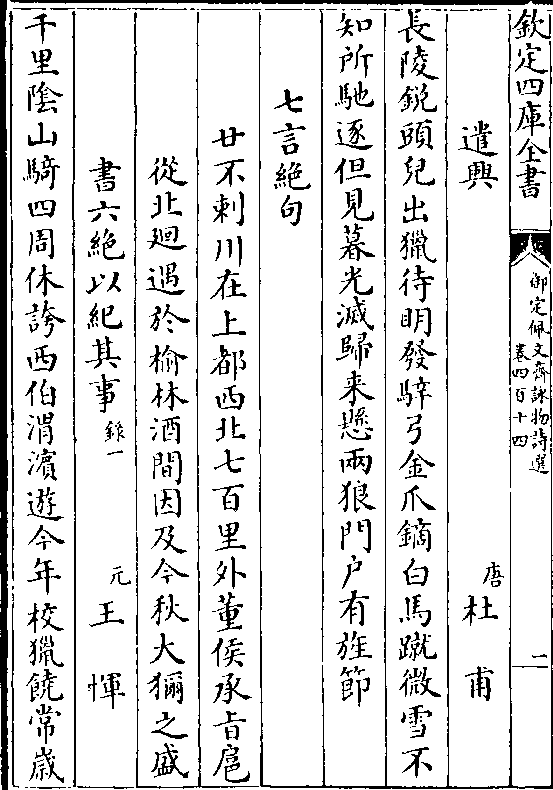 欽定四庫全書
御定佩文齋詠物詩選
卷四百十四
二
遣興
唐
杜甫
長陵銳頭兒出獵待明發騂弓金爪鏑白馬蹴微雪不
知所馳逐但見暮光滅歸来懸兩狼門户有旌節
七言絶句
廿不剌川在上都西北七百里外董侯承旨扈
從北廻遇於榆林酒間因及今秋大獮之盛
書六絶以紀其事
錄一
元
王惲
千里陰山騎四周休誇西伯渭濱遊今年校獵饒常歳